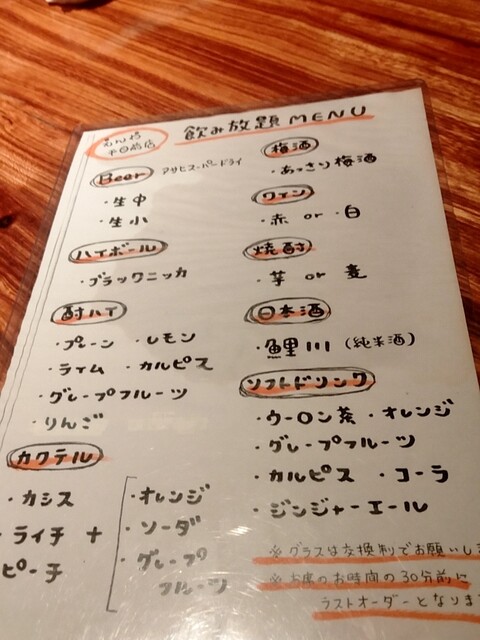 飲み放題 MENU
Beer アサヒスーパードライ
・生中
・生小
ハイボール
・ブラックニッカ
酎ハイ
・プレーン ・レモン
・ライム ・カルピス
・グレープフルーツ
・りんご
カクテル
・カシス
・ライチ +
ピーチ
・オレンジ
・ソーダ
・グレープ
フルーツ
梅酒
・あっさり梅酒
ワイン
・赤 or ・白
焼酎
・芋 or 麦
日本酒
・鯉川 (純米酒)
ソフトドリンク
・ウーロン茶 ・オレンジ
・グレープフルーツ
・カルピス ・コーラ
・ジンジャーエール
※グラスは交換制でお願いし
※お席のお時間の30分前に
ラストオーダーとなりま